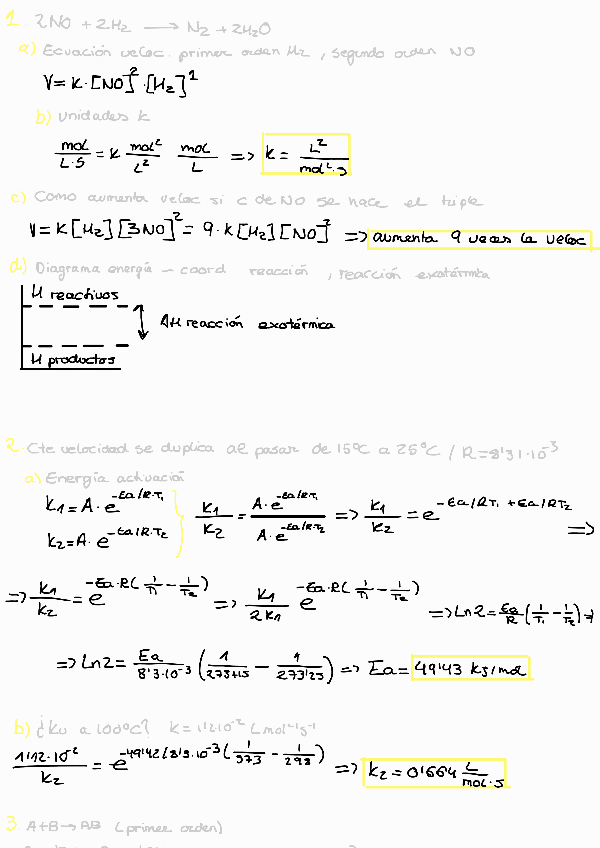 1. 2NO + 2H₂ ⟶ N₂ + 2H₂O
a) Ecuación veloc. primer orden H₂, segundo orden NO
V = K · [NO]² · [H₂]¹
b) unidades k
mol/L·S = K mol²/L² mol/L => K = L²/mol²·s
c) Como aumenta veloc si c de NO se hace el triple
V = K[H₂][3NO]² = 9·K[H₂][NO]² => aumenta 9 veces la veloc
d) Diagrama energía – coord reacción, reacción exotérmita
H reactivos
ΔH reacción exotérmica
H productos
2. Cte velocidad se duplica al pasar de 15ºC a 25ºC / R=8'31·10⁻³
a) Energía activación
K₁ = A·e^(-Ea/R·T₁)
K₂ = A·e^(-Ea/R·T₂)
K₁/K₂ = A·e^(-Ea/R·T₁)/A·e^(-Ea/R·T₂) => K₁/K₂ = e^(-Ea/RT₁ + Ea/RT₂) =>
=> K₁/K₂ = e^(-Ea·R(1/T₁ - 1/T₂)) => K₁/2K₁ e^(-Ea·R(1/T₁ - 1/T₂)) => Ln2 = Ea/R (1/T₁ - 1/T₂) =>
=> Ln2 = Ea/8'3·10⁻³ (1/273+15 - 1/273'25) => Ea = 49'43 KJ/mol
b) ¿Kv a 100ºC? K = 1'12·10⁻² L mol⁻¹s⁻¹
1'12·10⁻²/K₂ = e^(-49'42/8'3·10⁻³(1/373 - 1/298)) => K₂ = 0'664 L/mol·s
3. A+B → AB (primer orden)